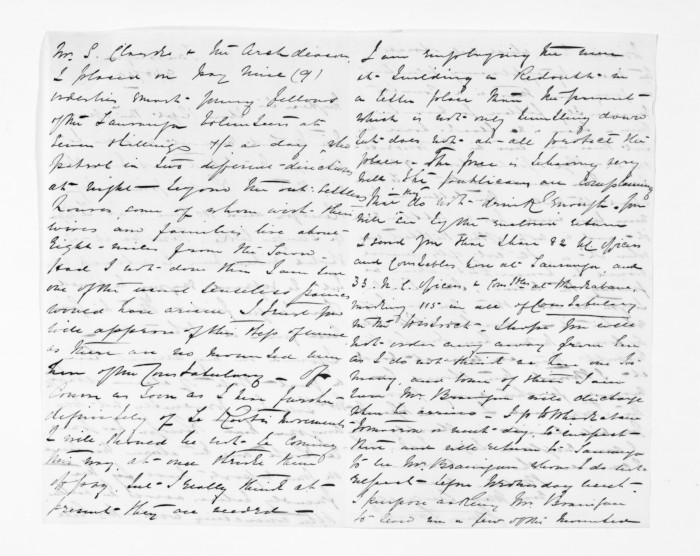 Mr. S. Clarke & the Archdeacon
I placed on pay Nine (9)
orderlies smart young fellows
of the Tauranga Volunteers at
seven shillings a day, who
patrol in two different directions
at night beyond the out settlers
houses some of whom with their
wives and families live about
Eight miles from the Town
had I not done this I am sure
one of the usual senseless panics
would have arisen, I trust you
will approve of this step of mine
as there are no mounted men
here of the Constabulary - Of
course as soon as I hear further
definitely of Te Kooti's movements
I will should he not be coming
this way, at once strike them
off pay but I really think at
present they are needed -
I am employing the men
at building a Redoubt in
a better place than the present
which is not only tumbling down
but does not at all protect the
place - The force is behaving very
well. The publicans are complaining
that they do not drink enough - You
will see by the enclosed return
I send you that I have 82 N.C. Officers
and Constables here at Tauranga, and
33 N.C. Officers & Constbles at Whakatane,
making 115 in all of Constabulary
in the District - I hope you will
not order any away from here
as I do not think as one too
many, and some of them I am
sure Mr. Branigan will discharge
when he arrives - I go to Whakatane
tomorrow or next day to inspect
there and will return to Tauranga
to see Mr. Branigan whom I do not
expect before Wednesday next -
I purpose asking Mr. Branigan
to send me a few of the mounted